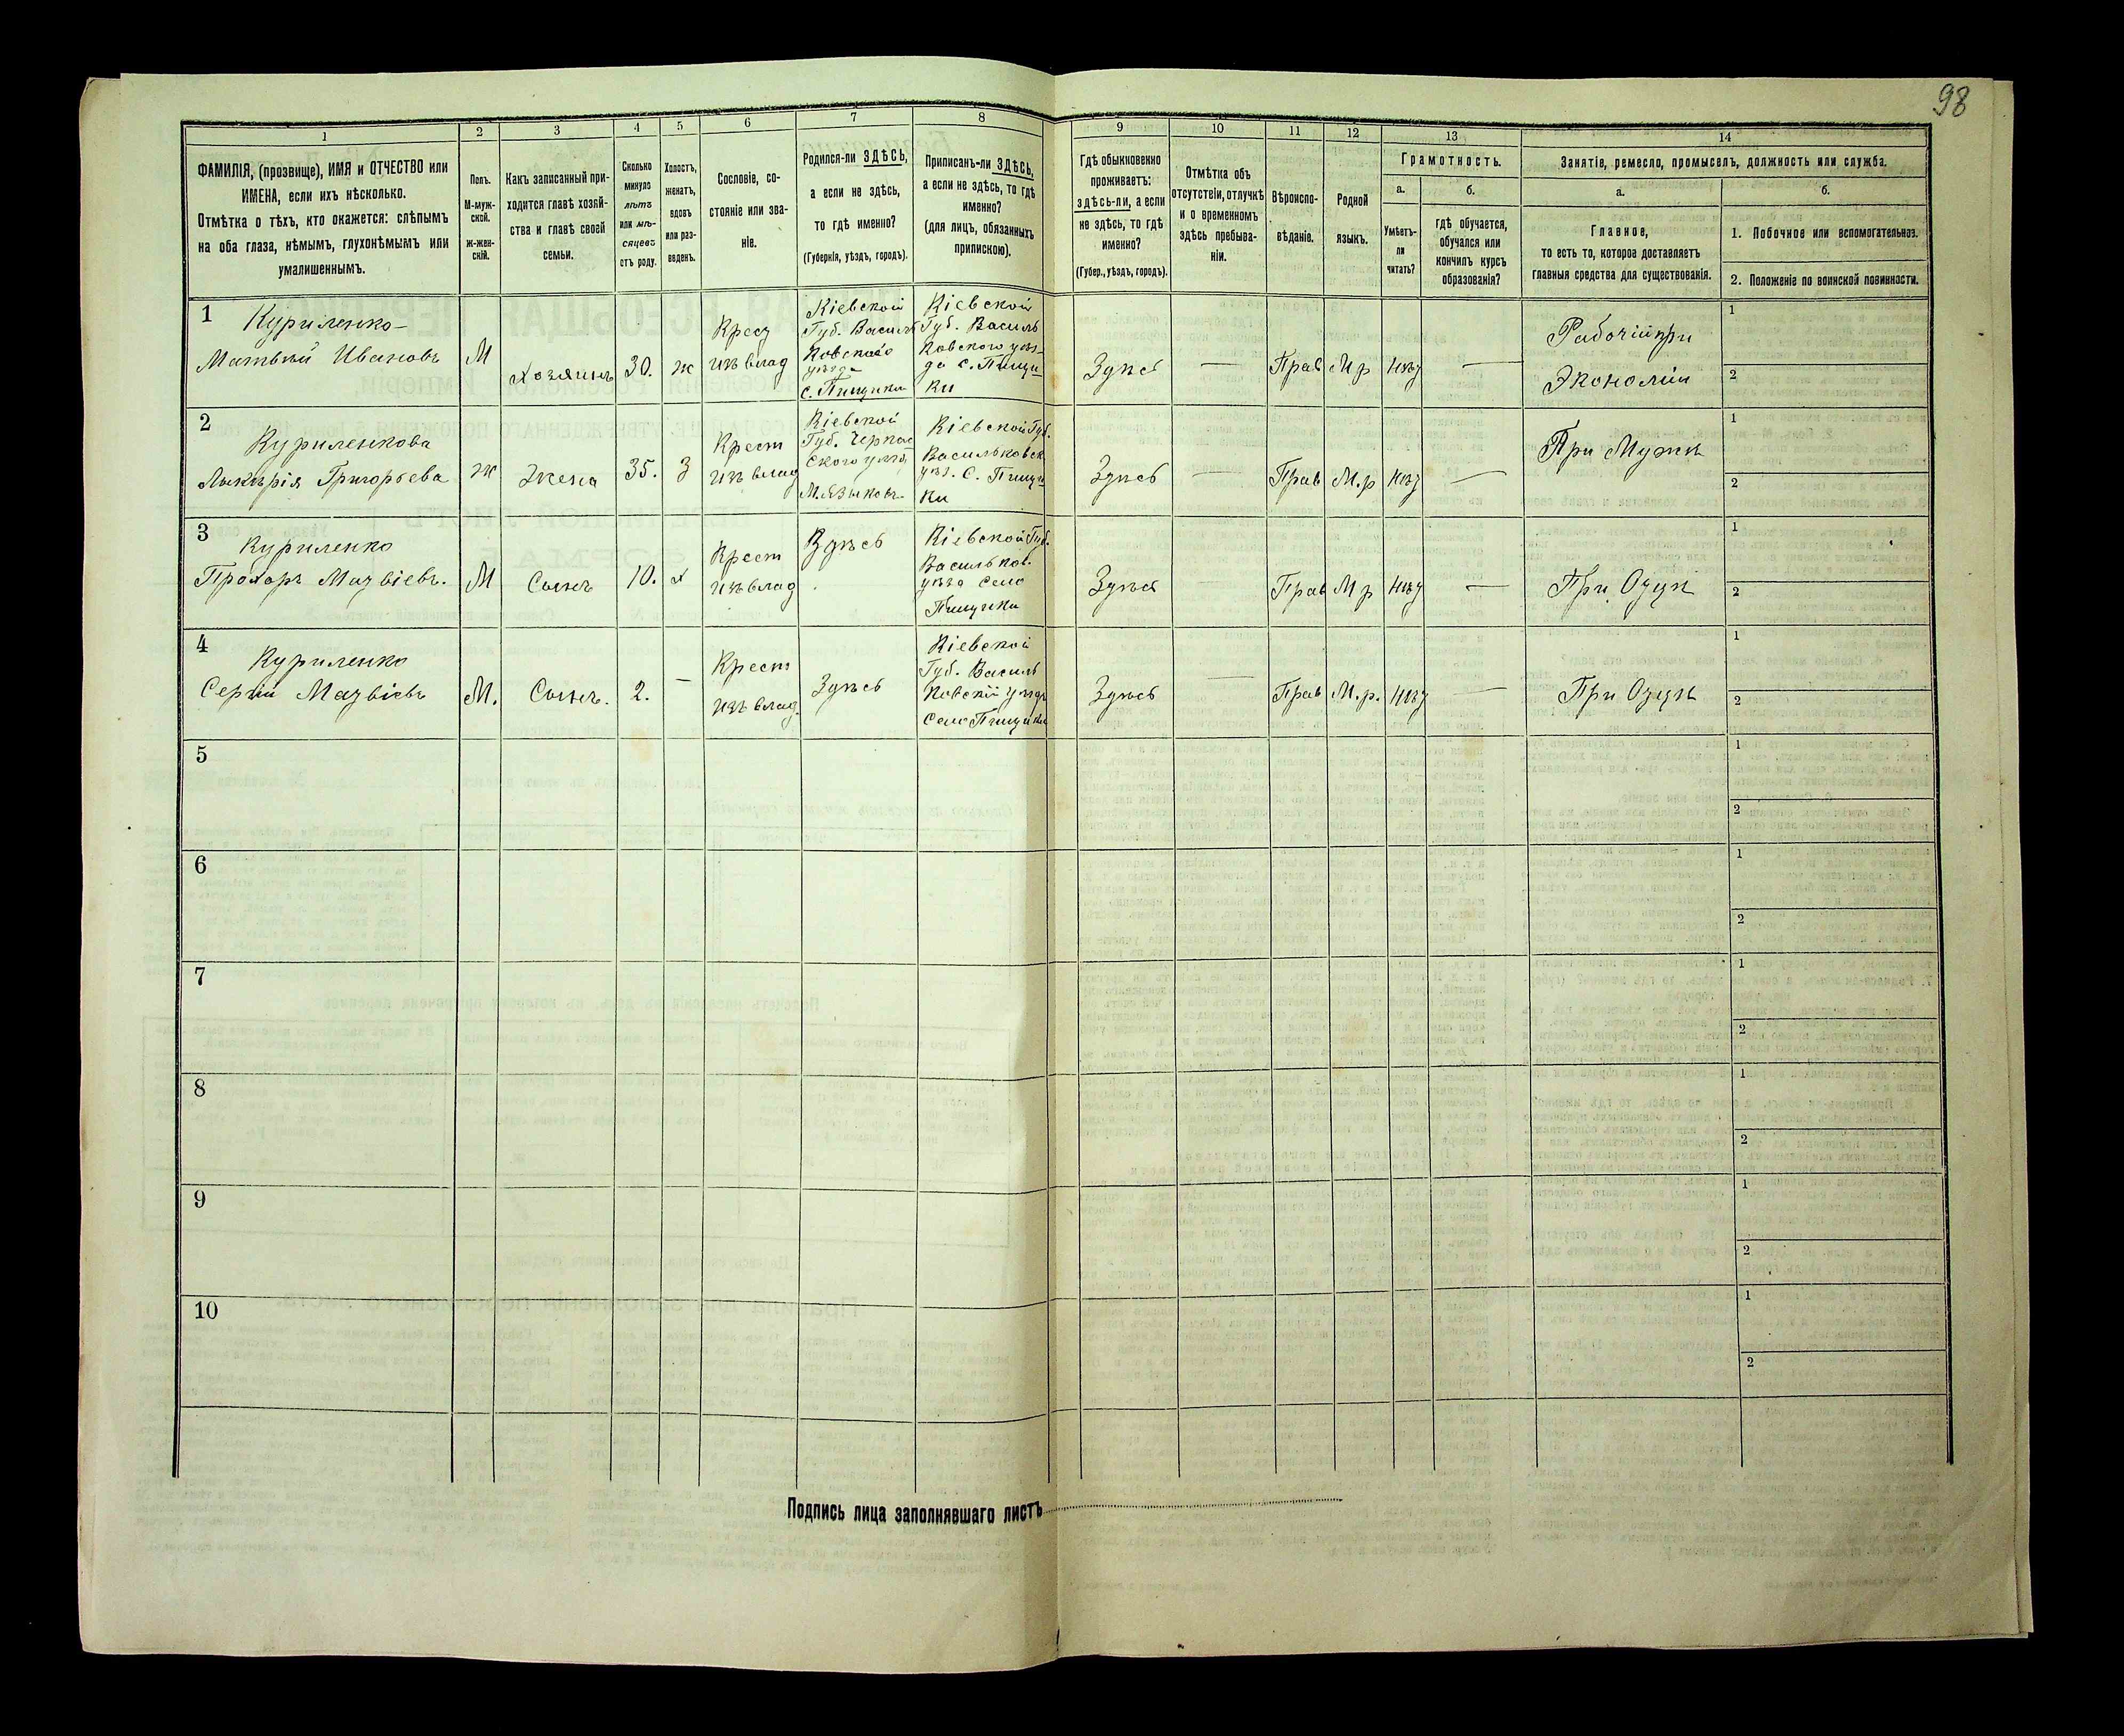 98
1
2
3
4
5
6
7
8
9
10
11
12
13
14
ФАМИЛІЯ, (прозвище), ИМЯ и ОТЧЕСТВО или
ИМЕНА, если ихъ нѣсколько.
Отмѣтка о тѣхъ, кто окажется: слѣпымъ
на оба глаза, нѣмымъ, глухонѣмымъ или
умалишеннымъ.
Полъ.
М-муж-
ской.
Ж-жен-
скій.
Какъ записанный при-
ходится главѣ хозяй-
ства и главѣ своей
семьи.
Сколько
минуло
лѣтъ
или мѣ-
сяцевъ
отъ роду.
Холостъ,
женатъ,
вдовъ
или раз-
веденъ.
Сословіе, со-
стояніе или зва-
ніе.
Родился-ли ЗДѢСЬ,
а если не здѣсь,
то гдѣ именно?
(Губернія, уѣздъ, городъ).
Приписанъ-ли ЗДѢСЬ,
а если не здѣсь, то гдѣ
именно?
(для лицъ, обязанныхъ
припискою).
Гдѣ обыкновенно
проживаетъ:
здѣсь-ли, а если
не здѣсь, то гдѣ
именно?
(Губер., уѣздъ, городъ).
Отмѣтка объ
отсутствіи, отлучкѣ
и о временномъ
здѣсь пребыва-
ніи.
Вѣроиспо-
вѣданіе.
Родной
языкъ.
Грамотность.
а.
б.
Умѣетъ-
ли
читать?
гдѣ обучается,
обучался или
кончилъ курсъ
образованія?
Занятіе, ремесло, промыселъ, должность или служба.
а.
б.
Главное,
то есть то, которое доставляетъ
главныя средства для существованія.
1. Побочное или вспомогательное.
2. Положеніе по воинской повинности.
1
Куриленко-
Матвѣй Ивановъ
М
Хозяинъ
30.
ж
Крест
изъ влад
Кіевской
Губ. Василь
ковскаго
уѣзда
с. Пищики
Кіевской
Губ. Василь
ковского уѣз-
да с. Пищи-
ки
Здѣсь
—
Прав
М р
нѣт
—
Рабочій при
Экономіи
1
2
2
Куриленкова
Лукерія Григорьева
ж
Жена
35.
З
Крест
изъ влад
Кіевской
Губ. Черкас
ского уѣзд,
Кіевской Губ.
Васильковск
уѣз. С. Пищи
ки
Здѣсь
—
Прав
М.р
нѣт
—
При Мужѣ
1
2
3
Куриленко
Прохоръ Матвіевъ.
М
Сынъ
10.
х
Крест
изъ влад
Здѣсь
Кіевской Губ.
Васильков.
уѣзд село
Пищики
Здѣсь
Прав
М р
нѣт
—
При Отцѣ
1
2
4
Куриленко
Сергій Матвіевъ
М.
Сынъ.
2.
—
Крест
изъ влад.
Здѣсь
Кіевской
Губ. Василь
ковскій уѣздъ
село Пищики
Здѣсь
—
Прав
М.р.
нѣт
—
При Отцѣ
1
2
5
1
2
6
1
2
7
1
2
8
1
2
9
1
2
10
1
2
Подпись лица заполнявшаго листъ